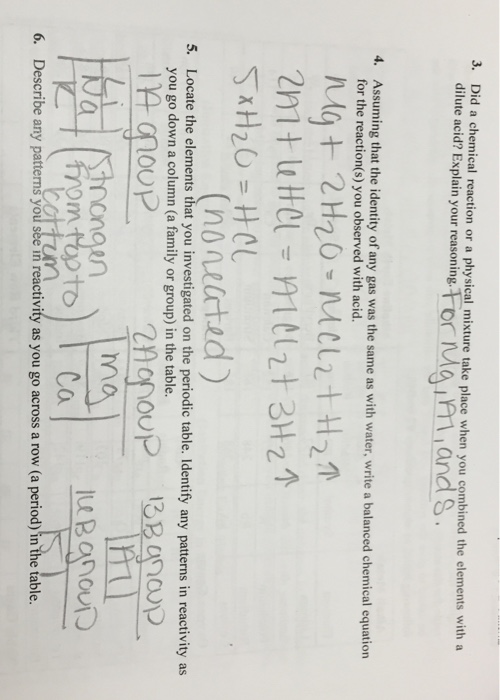 3. Did a chemical reaction or a physical mixture take place when you combined the elements with a
dilute acid? Explain your reasoning. For Mg, Al, and S.
4. Assuming that the identity of any gas was the same as with water, write a balanced chemical equation
for the reaction(s) you observed with acid.
Mg + 2H2O = MCl2 + H2↑
2Al + 6HCl = AlCl2 + 3H2↑
5xH2O = HCl
(no reated)
5. Locate the elements that you investigated on the periodic table. Identify any patterns in reactivity as
you go down a column (a family or group) in the table.
1A group 2A group 13B group
Li Na K (Strongen from top to bottum) mg ca Al 16B group S
6. Describe any patterns you see in reactivity as you go across a row (a period) in the table.